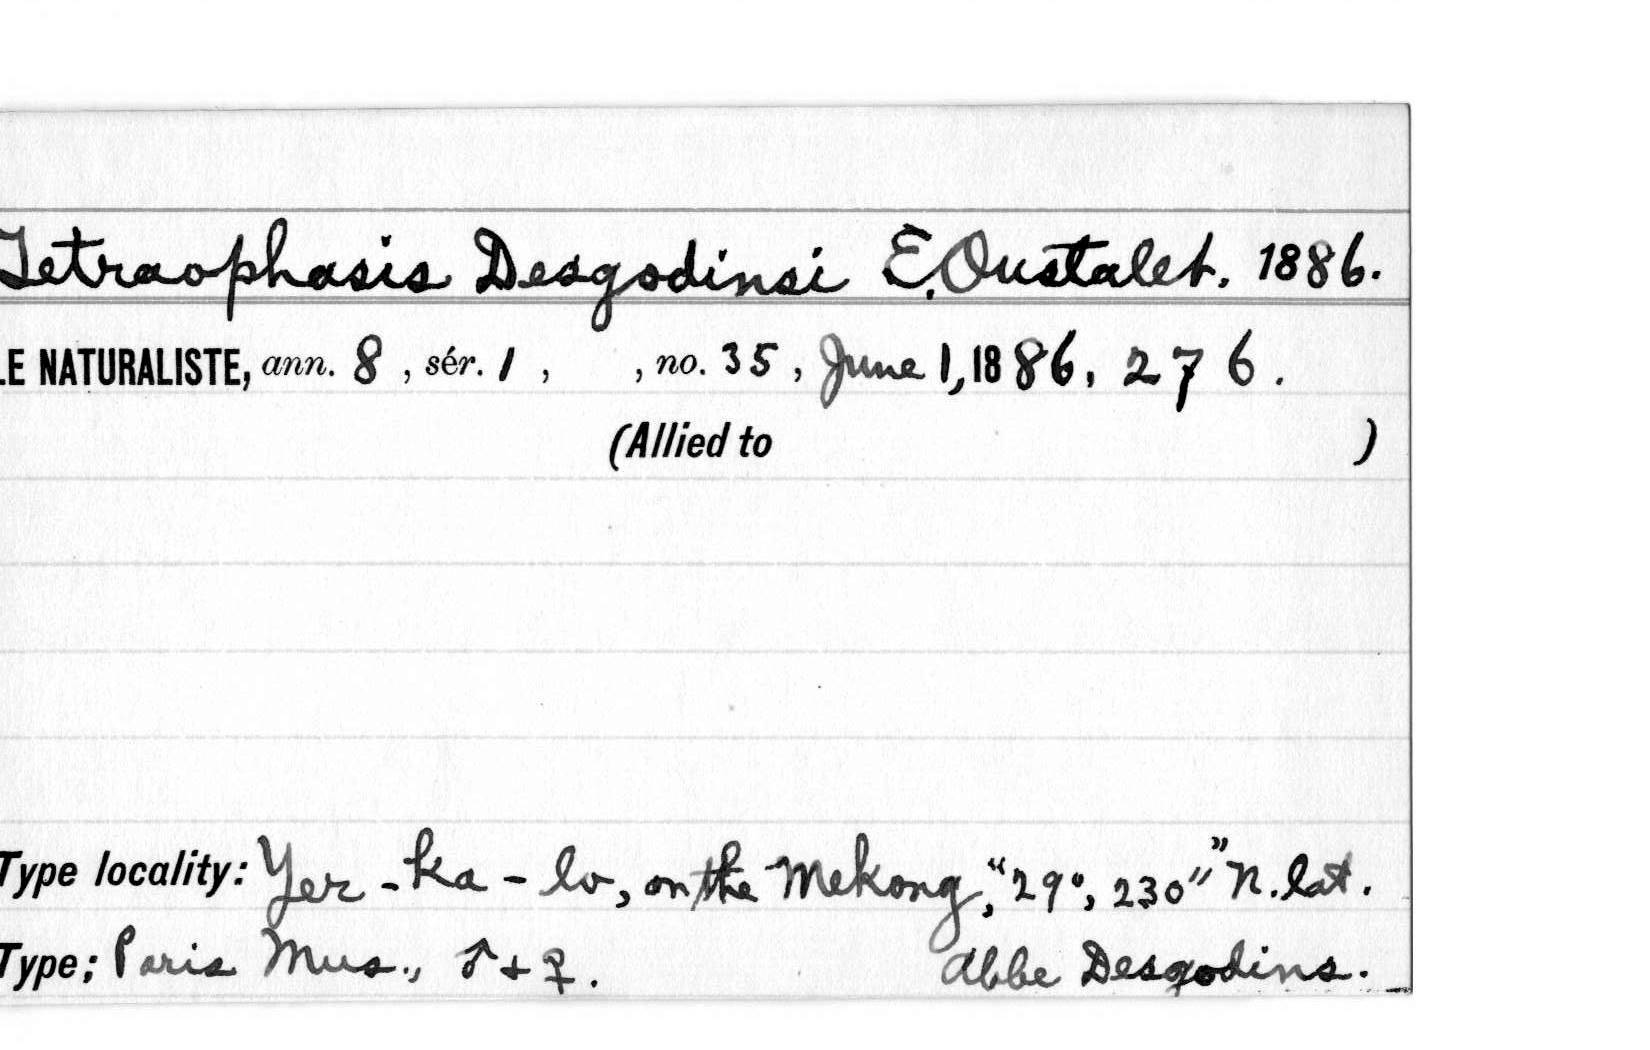 Tetraophasis Desgodinsi E. Oustalet, 1886.
LE NATURALISTE, ann. 8, sér. 1, , no. 35, June 1, 1886, 276.
(Allied to )
Type locality: Yer-ka-lo, on the Mekong, "29°, 230″" N. lat.
Type; Paris Mus., ♂ + ♀. Abbe Desgodins.